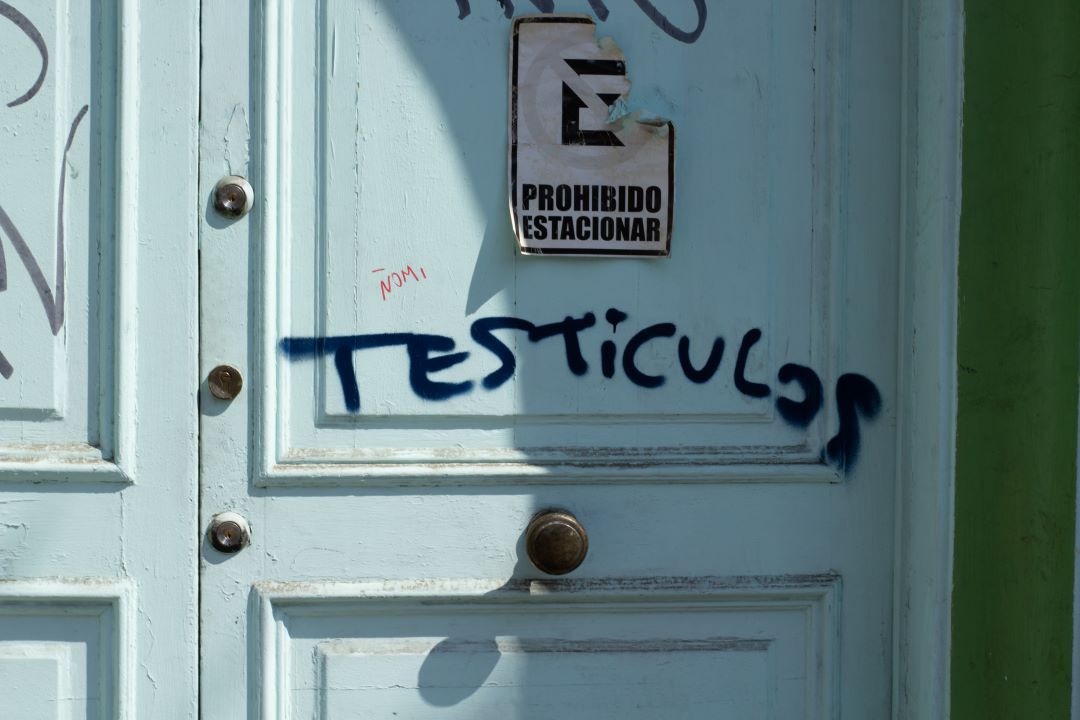 E
PROHIBIDO
ESTACIONAR
ÑOMI
TESTICULOS